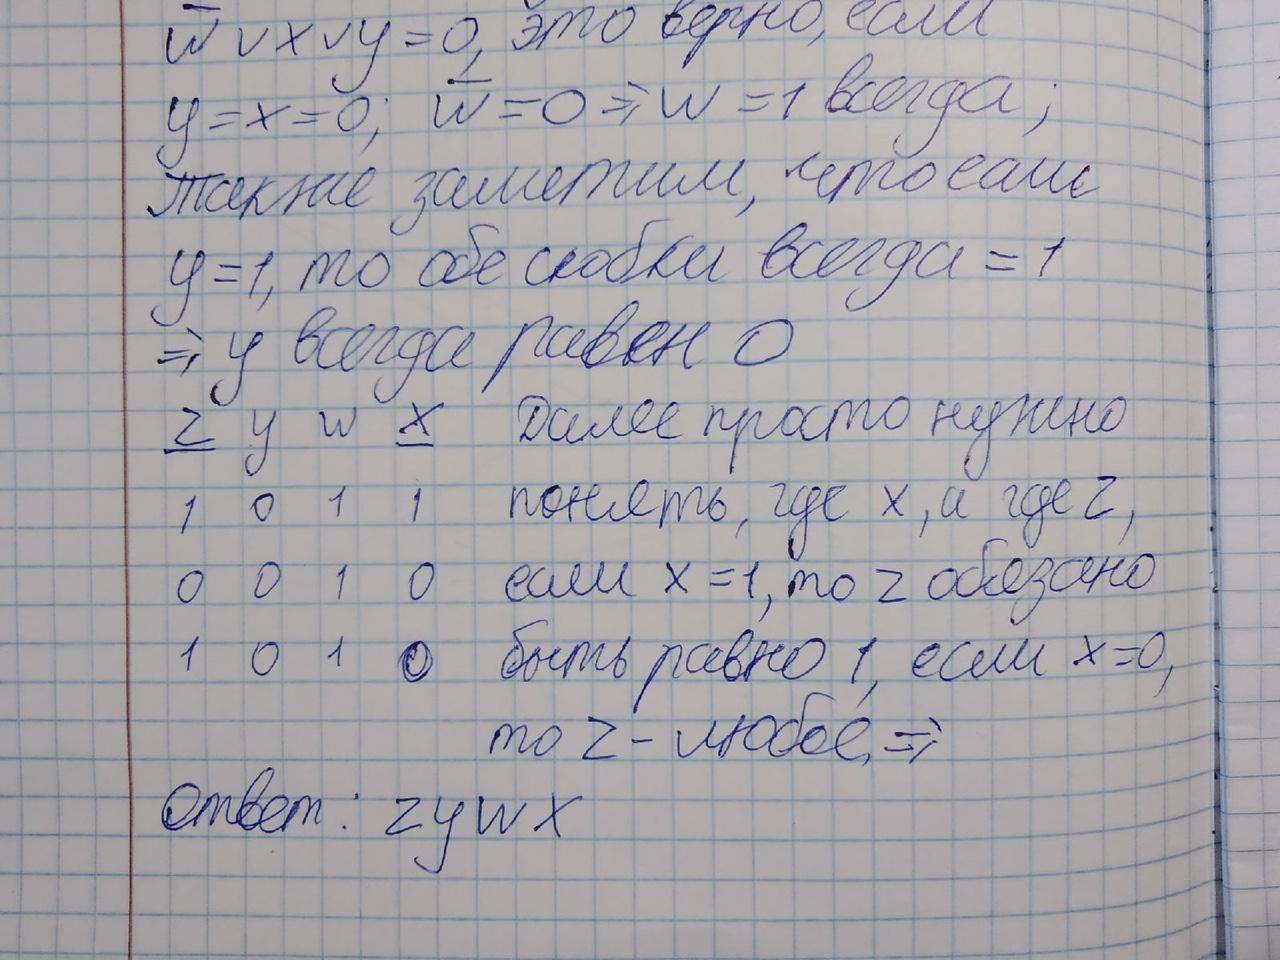 w̅ ∨ x ∨ y = 0, это верно, если
y = x = 0; w̅ = 0 ⇒ w = 1 всегда;
также заметим, что если
y = 1, то обе скобки всегда = 1
⇒ y всегда равен 0
z y w x Далее просто нужно
1 0 1 1 понять, где x, а где z,
0 0 1 0 если x = 1, то z обязано
1 0 1 0 быть равно 1, если x = 0,
то z - любое, ⇒
Ответ: z y w x